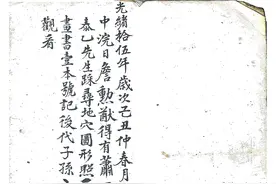 光緒拾伍年歲次己丑仲春月
中浣日詹勲猷得有蕭
泰乙先生踩尋地穴圓形照
畫書壹本號記後代子孫
觀看